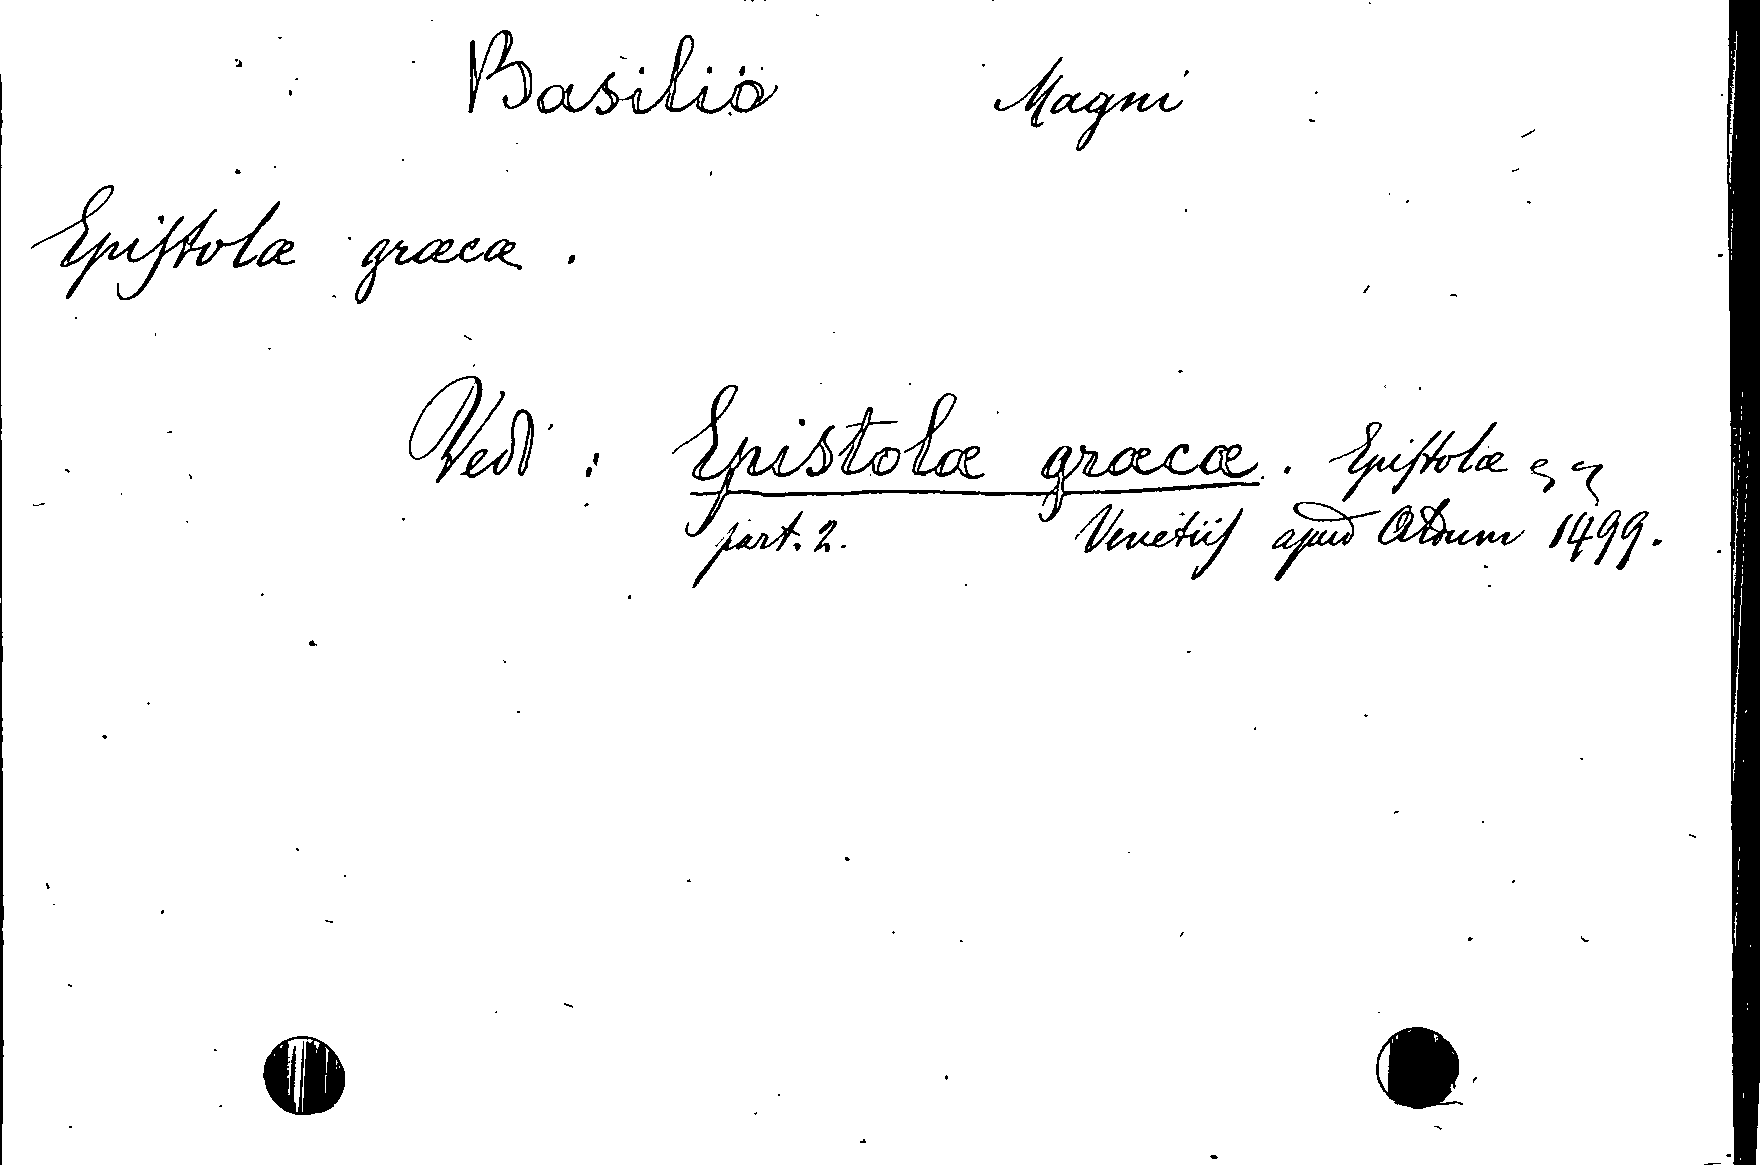 Basilio Magni
Epiſtolæ græcæ.
Vedi: Epistolæ græcæ. Epiſtolæ
part. 2. Venetiiſ apud Aldum 1499.